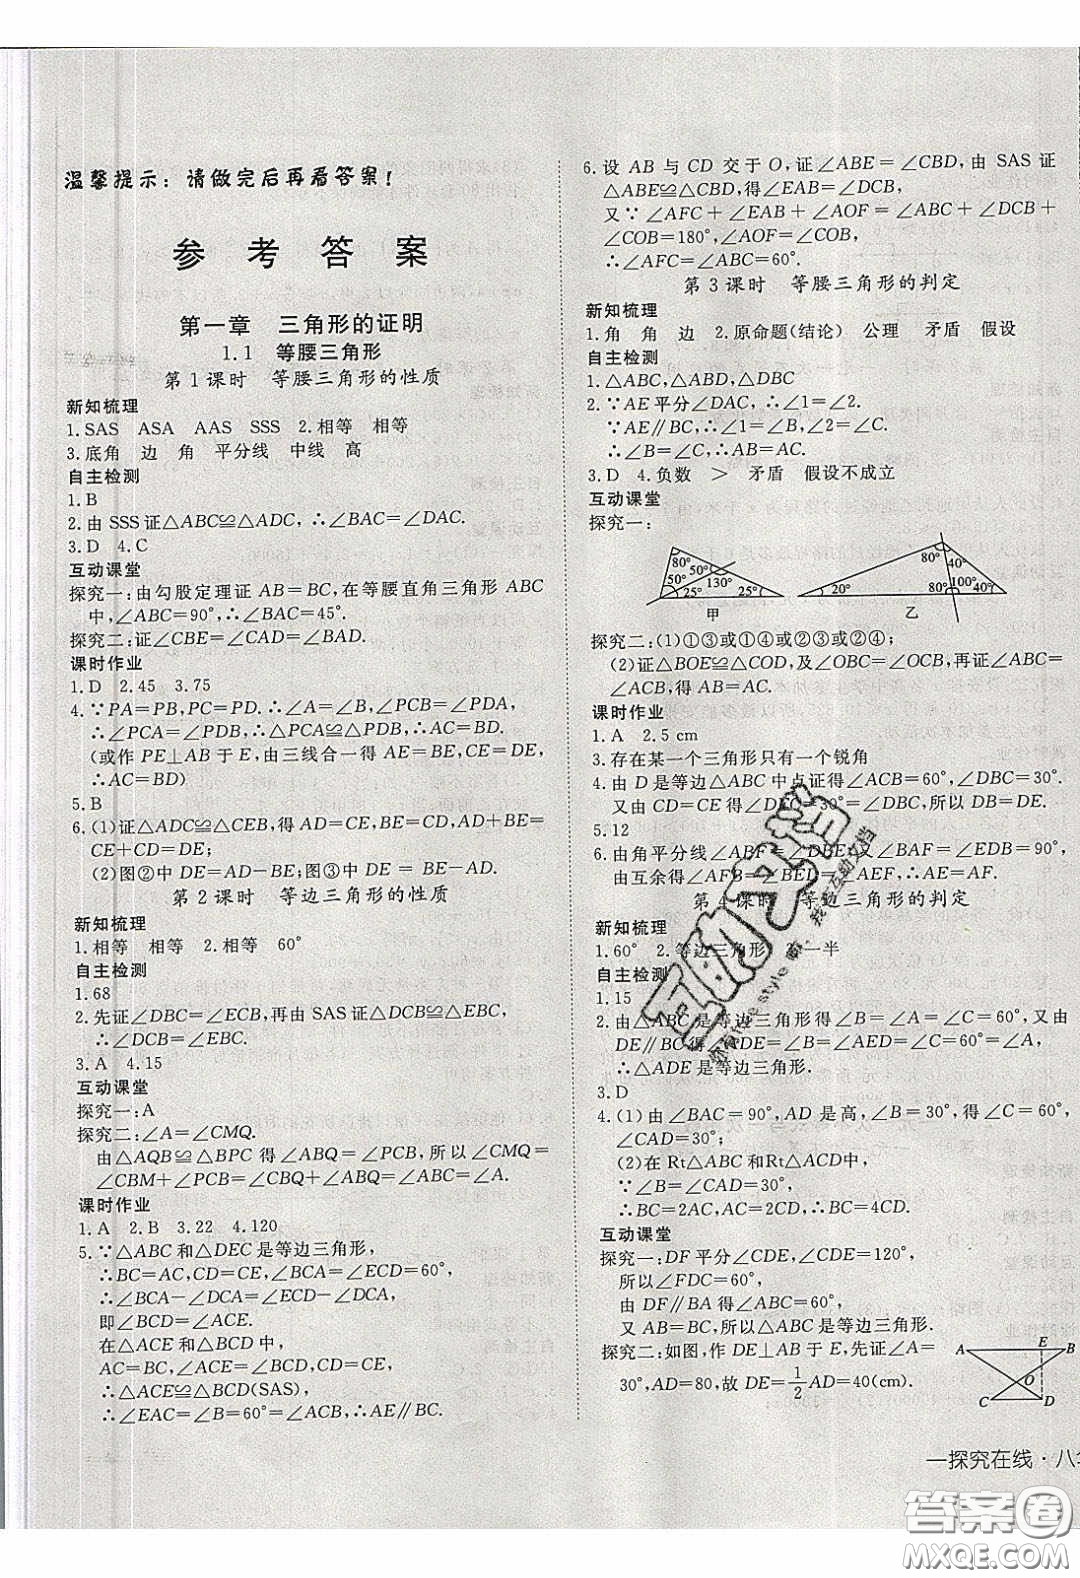 温馨提示：请做完后再看答案！
参考答案
第一章　三角形的证明
1.1　等腰三角形
第1课时　等腰三角形的性质
新知梳理
1.SAS　ASA　AAS　SSS　2.相等　相等
3.底角　边　角　平分线　中线　高
自主检测
1.B
2.由SSS证△ABC≌△ADC，∴∠BAC=∠DAC.
3.D　4.C
互动课堂
探究一:由勾股定理证AB=BC,在等腰直角三角形ABC
中,∠ABC=90°,∴∠BAC=45°.
探究二:证∠CBE=∠CAD=∠BAD.
课时作业
1.D　2.45　3.75
4.∵PA=PB,PC=PD.∴∠A=∠B,∠PCB=∠PDA,
∴∠PCA=∠PDB,∴△PCA≌△PDB,∴AC=BD.
(或作PE⊥AB于E,由三线合一得AE=BE,CE=DE,
∴AC=BD)
5.B
6.(1)证△ADC≌△CEB,得AD=CE,BE=CD,AD+BE=
CE+CD=DE;
(2)图②中DE=AD-BE;图③中DE = BE-AD.
第2课时　等边三角形的性质
新知梳理
1.相等　相等　2.相等　60°
自主检测
1.68
2.先证∠DBC=∠ECB,再由SAS证△DCB≌△EBC,
∴∠DCB=∠EBC.
3.A　4.15
互动课堂
探究一:A
探究二:∠A=∠CMQ.
由△AQB≌△CPB得∠ABQ=∠PBC,所以∠CMQ=
∠CBM+∠PCB=∠CBQ+∠ABQ=∠ABC=∠A.
课时作业
1.A　2.B　3.22　4.120
5.∵△ABC和△DEC是等边三角形,
∴BC=AC,CD=CE,∠BCA=∠ECD=60°,
∴∠BCA-∠DCA=∠ECD-∠DCA,
即∠BCD=∠ACE.
在△ACE和△BCD中,
AC=BC,∠ACE=∠BCD,CE=CD,
∴△ACE≌△BCD(SAS),
∴∠EAC=∠B=60°=∠ACB,∴AE∥BC.
6.设AB与CD交于O,证∠ABE=∠CBD,由SAS证
△ABE≌△CBD,∴∠EAB=∠DCB,
又∵∠AFC+∠EAB+∠AOF=∠ABC+∠DCB+
∠COB=180°,∠AOF=∠COB,
∴∠AFC=∠ABC=60°.
第3课时　等腰三角形的判定
新知梳理
1.角　角　边　2.原命题(结论)　公理　矛盾　假设
自主检测
1.△ABC,△ABD,△DBC
2.∵AE平分∠DAC,∴∠1=∠2.
∵AE∥BC,∴∠1=∠B,∠2=∠C.
∴∠B=∠C,∴AB=AC.
3.D　4.负数　>　矛盾　假设不成立
互动课堂
探究一:
80° 50°
50° 130°
25° 25°
甲
80° 40°
20° 80° 100° 40°
乙
探究二:(1)①③或①④或②③或②④;
(2)证△BOE≌△COD,及∠OBC=∠OCB,再证∠ABC=
∠ACB,得AB=AC.
课时作业
1.A　2.5 cm
3.存在某一个三角形只有一个锐角
4.由D是等边△ABC中点证得∠ACB=60°,∠DBC=30°.
又由CD=CE得∠DCE=30°=∠DBC,所以DB=DE.
5.12
6.由角平分线∠ABF=∠DBE,又∠BAF=∠EDB=90°,
由互余得∠AFB=∠BED=∠AEF,∴AE=AF.
第4课时　等边三角形的判定
新知梳理
1.60°　2.等边三角形　一半
自主检测
1.15
2.由△ABC是等边三角形得∠B=∠A=∠C=60°,又由
DE∥BC得∠ADE=∠B=∠AED=∠C=60°=∠A,
∴△ADE是等边三角形.
3.D
4.(1)由∠BAC=90°,AD是高,∠B=30°,得∠C=60°,
∠CAD=30°;
(2)在Rt△ABC和Rt△ACD中,
∵∠B=∠CAD=30°,
∴BC=2AC,AC=2CD,∴BC=4CD.
互动课堂
探究一:DF平分∠CDE,∠CDE=120°,
所以∠FDC=60°,
由DF∥BA得∠ABC=60°,
又AB=BC,所以△ABC是等边三角形.
探究二:如图,作DE⊥AB于E,先证∠A=
30°,AD=80,故DE=1/2AD=40(cm).
A E B
O
C D
一探究在线·八
答案圈
MXQE.COM